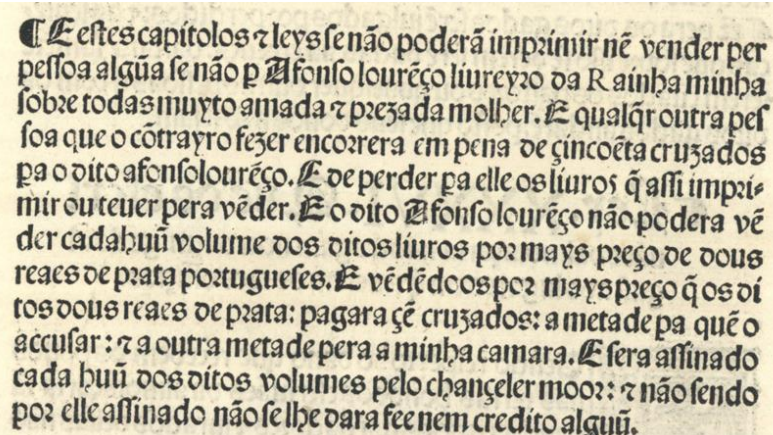 ¶ E estes capitolos ⁊ leys se não poderã imprimir nẽ vender per
pessoa algũa se não p̱ Afonso lourẽço liureyro da Rainha minha
sobre todas muyto amada ⁊ prezada molher. E qualq̃r outra pes
soa que o cõtrayro fezer encorrera em pena de çincoẽta cruzados
p̱a o dito afonso lourẽço. E de perder p̱a elle os liuros q̃ assi impri-
mir ou teuer pera vẽder. E o dito Afonso lourẽço não podera vẽ
der cada huũ volume dos ditos liuros por mays preço de dous
reaes de prata portugueses. E vẽdẽdoos por mays preço q̃ os di
tos dous reaes de prata: pagara çẽ cruzados: a metade pa quẽ o
accusar: ⁊ a outra metade pera a minha camara. E sera assinado
cada huũ dos ditos volumes pelo chançeler moor: ⁊ não sendo
por elle assinado não se lhe dara fee nem credito alguũ.